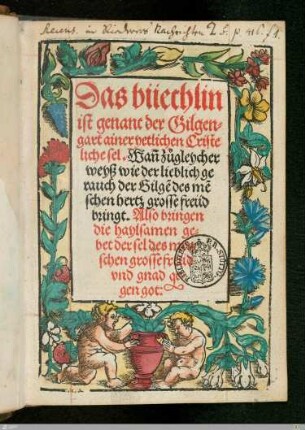 Recens. in Riederers Nachrichten 2. B. p.
Das büechlin
ist genant der Gilgen-
gart ainer yetlichen Cryste
liche sel. Wañ zůgleycher
weyß wie der lieblich ge
rauch der Gilgē des mē
schen hertz grosse freüd
bringt. Also bringen
die haylsamen ge-
bet der sel des
schen grosse freüd
vnd gnad
gen got: